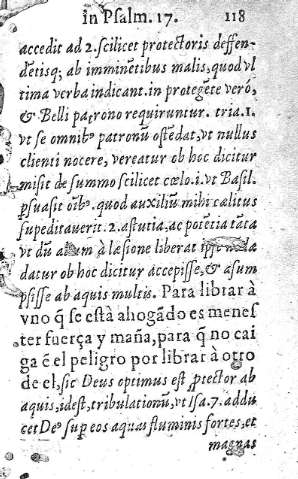 in Psalm. 17. 118
accedit ad 2. scilicet protectoris deffen-
dẽtisq, ab imminẽtibus malis, quod vl
tima verba indicant. in protegẽte verò,
& Belli patrono requiruntur. tria. 1.
vt se omnibꝰ patronũ ostẽdat, vt nullus
clienti nocere, vereatur ob hoc dicitur
misit de summo scilicet cœlo. i. vt Basil.
ꝑsuasit oĩbꝰ. quod auxiliũ mihi cælitus
supeditauerit. 2. astutia, ac potẽtia tãta
vt dũ aliũm à læsione liberat
datur ob hoc dicitur accepisse, & assum
psisse ab aquis multis. Para librar à
vno q̃ se està ahogãdo es menes
ter fuerça y maña, para q̃ no cai
ga ẽ el peligro por librar à otro
de el, sic Deus optimus est ꝓtector ab
aquis, idest, tribulationũ, vt Isa. 7. addu
cet Deꝰ sup eos aquas fluminis fortes, et
magnas